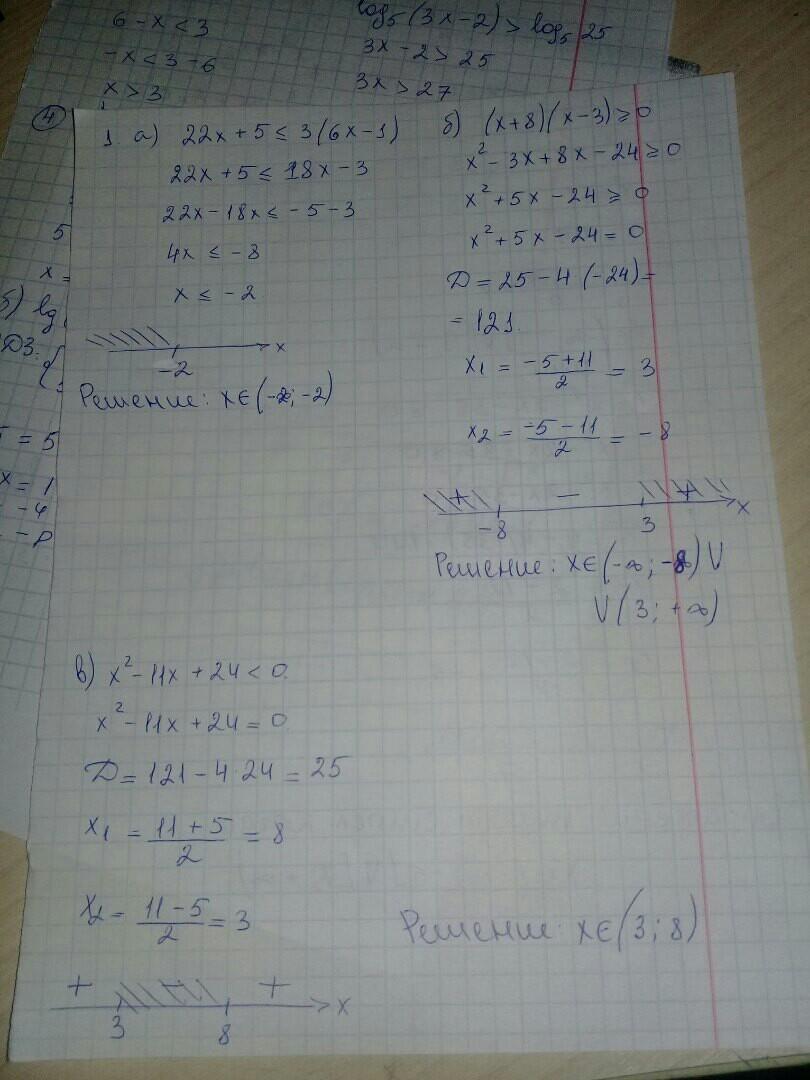 6 - x < 3
-x < 3 - 6
x > 3
log₅(3x-2) > log₅ 25
3x - 2 > 25
3x > 27
4
1. а) 22x + 5 ≤ 3(6x-1)
22x + 5 ≤ 18x - 3
22x - 18x ≤ -5 - 3
4x ≤ -8
x ≤ -2
-2 x
Решение: x∈(-∞; -2)
б) (x+8)(x-3) ≥ 0
x² - 3x + 8x - 24 ≥ 0
x² + 5x - 24 ≥ 0
x² + 5x - 24 = 0
D = 25 - 4(-24) =
= 121.
x₁ = (-5+11)/2 = 3
x₂ = (-5-11)/2 = -8
+ - +
-8 3 x
Решение: x∈(-∞; -8) V
V (3; +∞)
в) x² - 11x + 24 < 0.
x² - 11x + 24 = 0
D = 121 - 4·24 = 25
x₁ = (11+5)/2 = 8
x₂ = (11-5)/2 = 3
Решение: x∈(3; 8)
+ - +
3 8 x
5
x =
б) lg
ОДЗ:
= 5
x = 1
-4